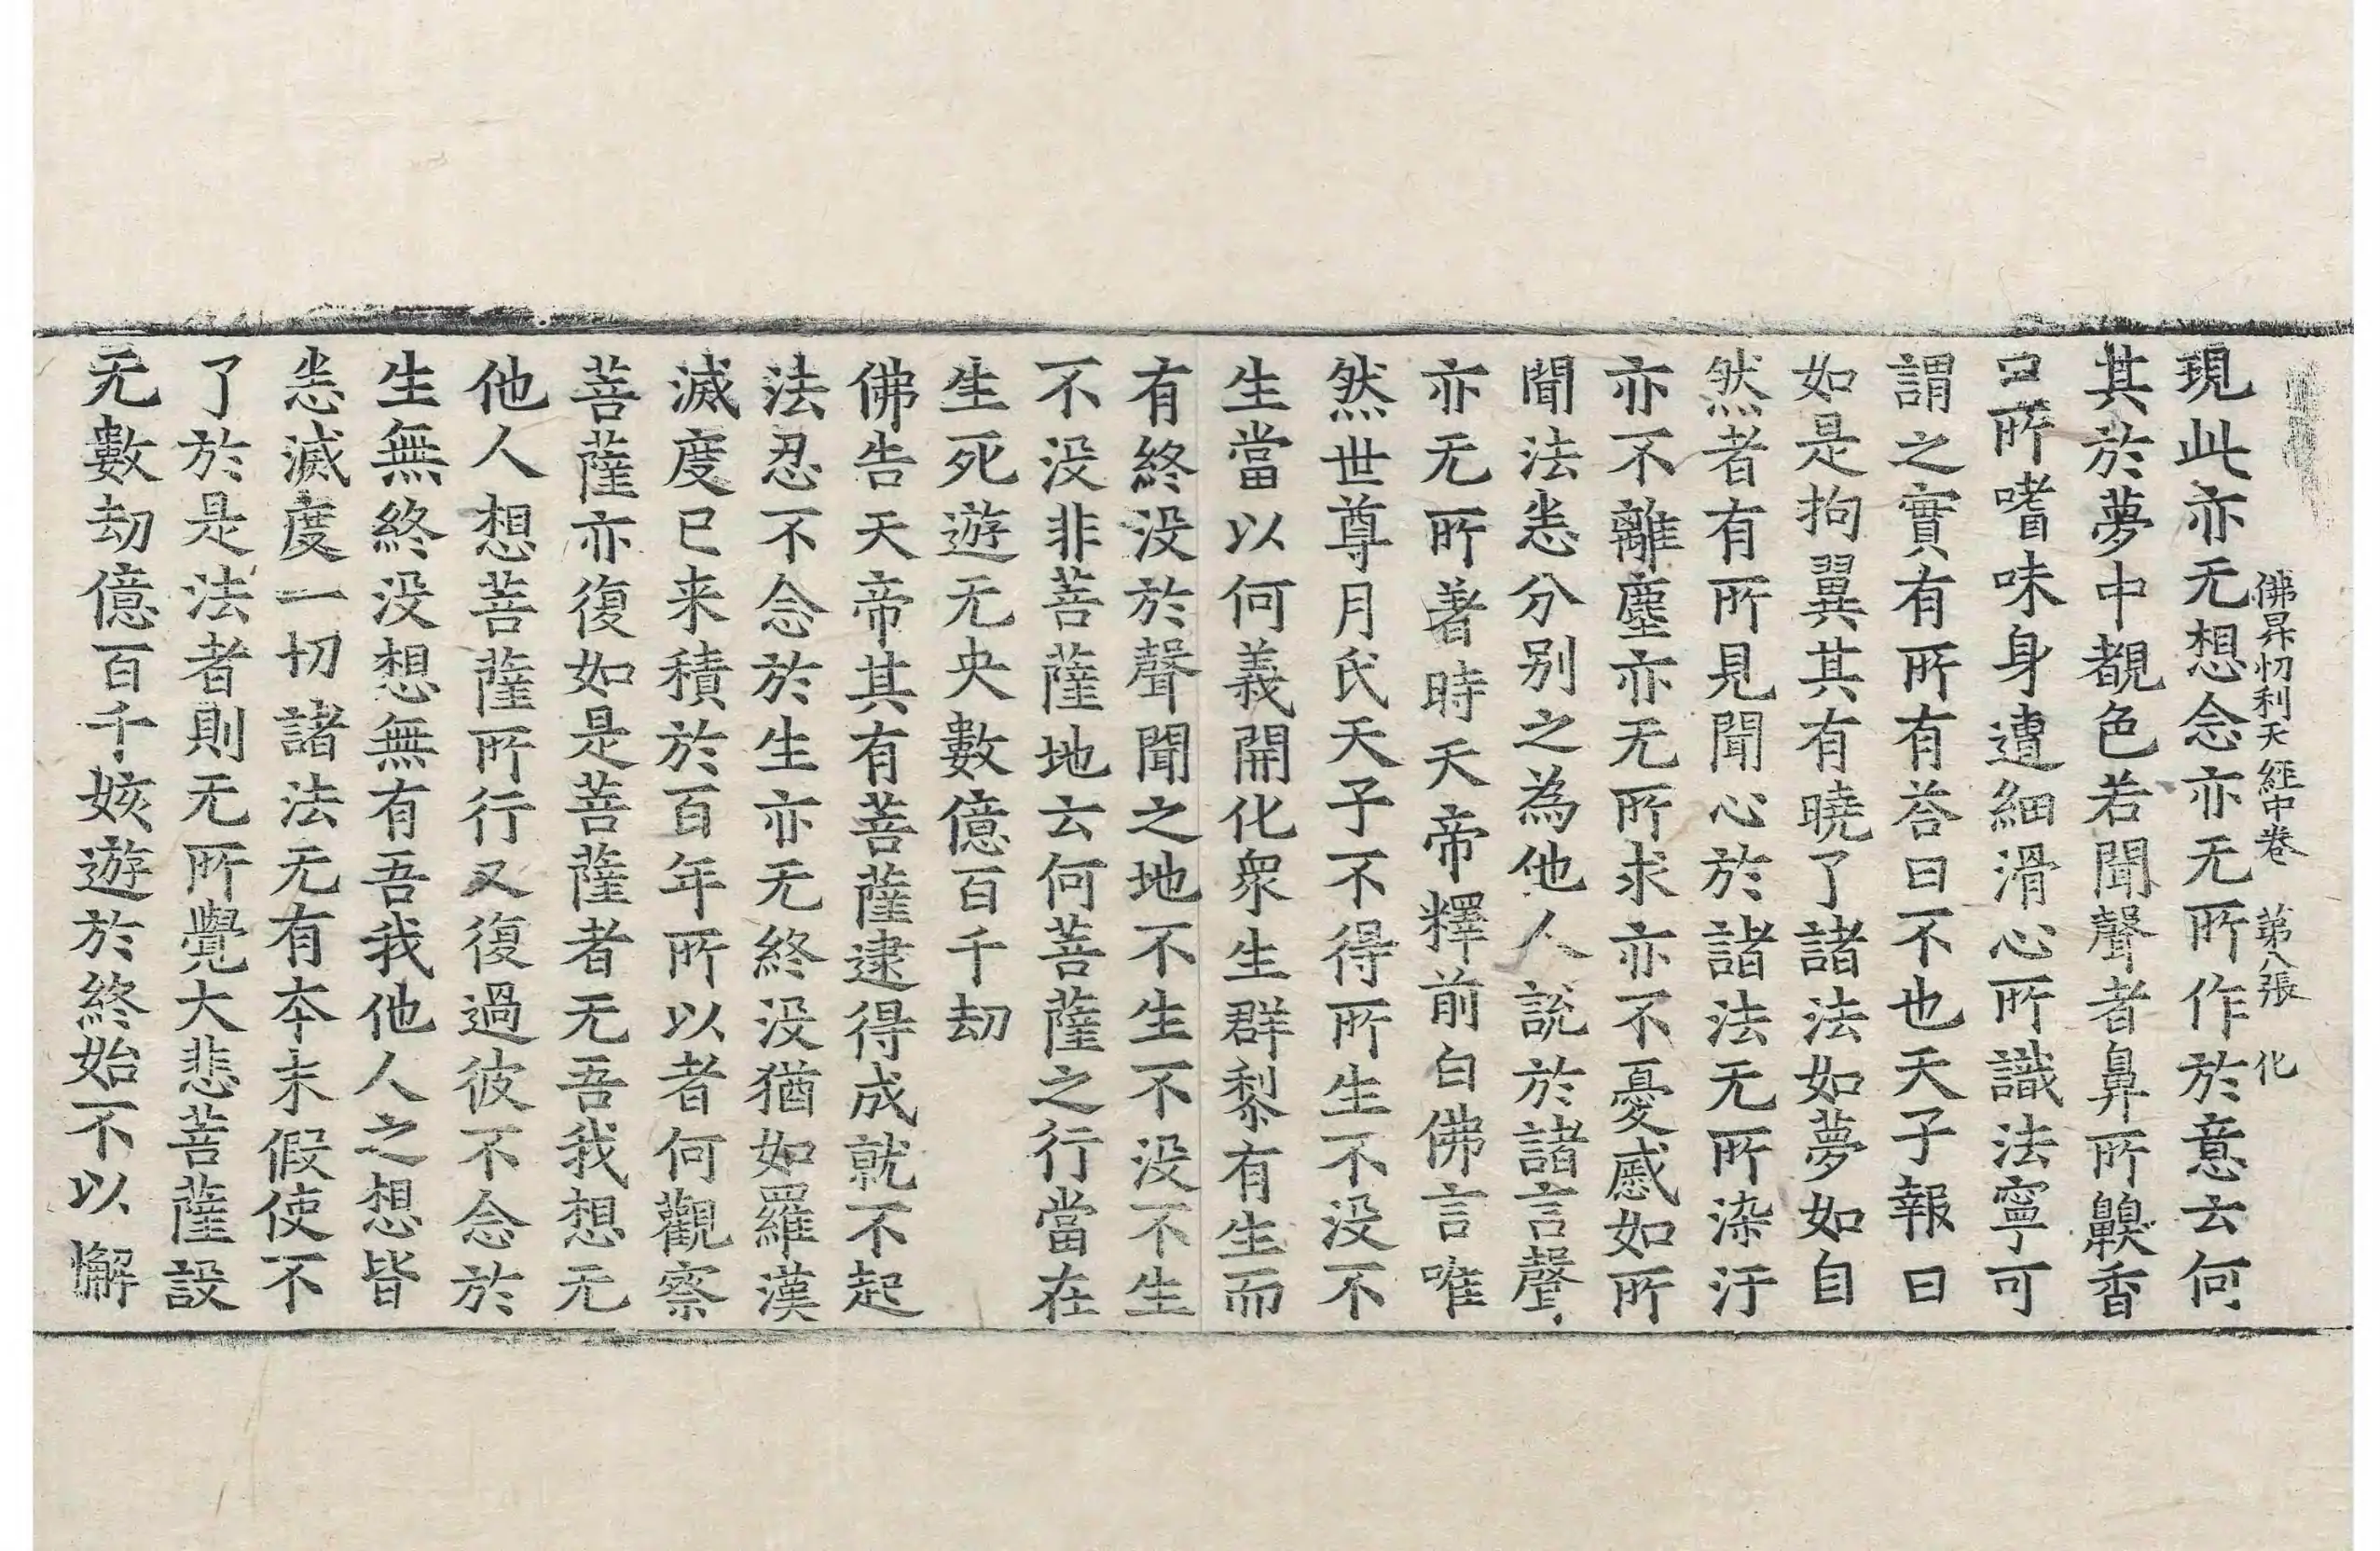 佛昇忉利天經中卷　第八張　化
現此亦无想念亦无所作於意云何
其於夢中覩色若聞聲者鼻所齅香
口所嗜味身遭細滑心所識法寧可
謂之實有所有荅曰不也天子報曰
如是拘翼其有曉了諸法如夢如自
然者有所見聞心於諸法无所染汙
亦不離塵亦无所求亦不憂慼如所
聞法悉分別之為他人說於諸言聲
亦无所著時天帝釋前白佛言唯
然世尊月氏天子不得所生不没不
生當以何義開化衆生群黎有生而
有終没於聲聞之地不生不没不生
不没非菩薩地云何菩薩之行當在
生死遊无央數億百千劫
佛告天帝其有菩薩逮得成就不起
法忍不念於生亦无終没猶如羅漢
滅度已来積於百年所以者何觀察
菩薩亦復如是菩薩者无吾我想无
他人想菩薩所行又復過彼不念於
生無終没想無有吾我他人之想皆
悉滅度一切諸法无有夲末假使不
了於是法者則无所覺大悲菩薩設
无數劫億百千姟遊於終始不以懈